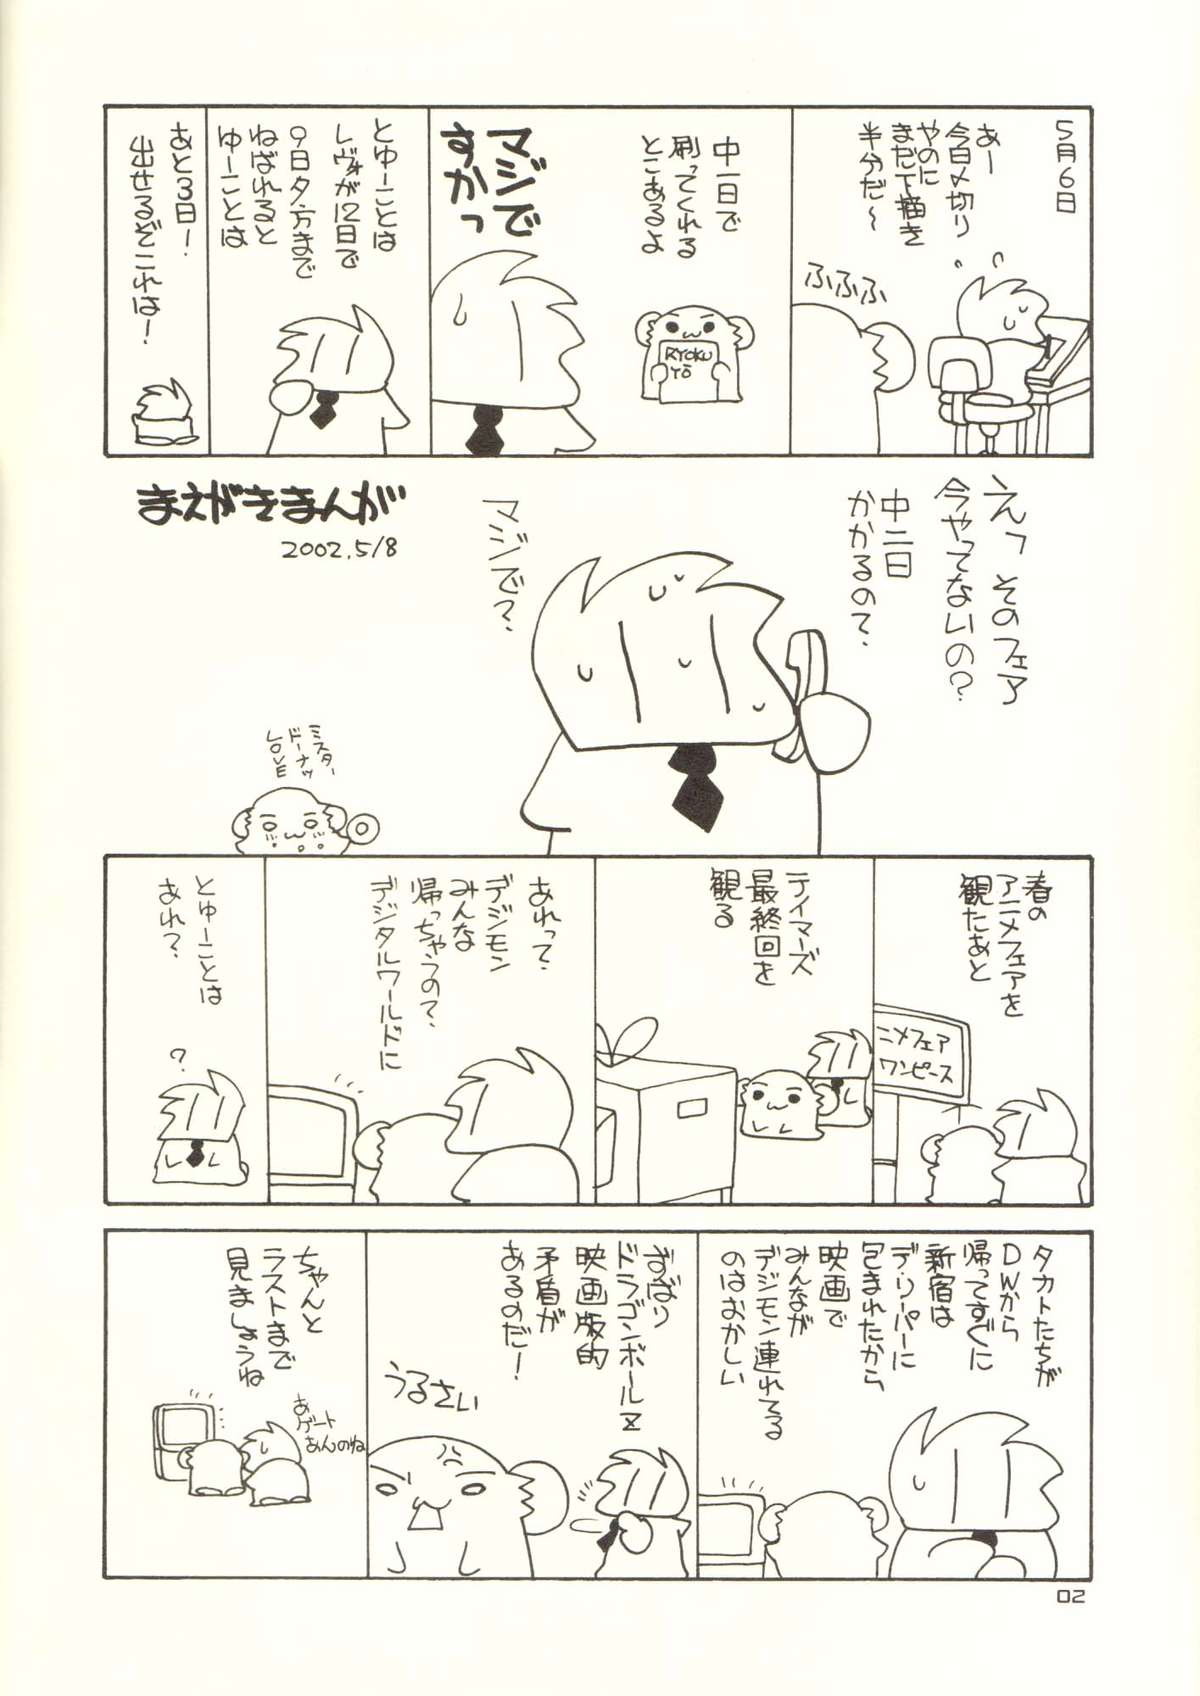 5月6日
あー
今日〆切り
やのに
まだ下描き
半分だ〜
ふふふ
中一日で
刷ってくれる
とこあるよ
RYOKU
YŌ
マジで
すかっ
とゆーことは
レヴォが12日で
9日夕方まで
ねばれると
ゆーことは
あと3日!
出せるぞこれは!
えっ そのフェア
今やってないの?
中二日
かかるの?
マジで?
まえがきまんが
2002.5/8
ミスター
ドーナツ
LOVE
春の
アニメフェアを
観たあと
ニメフェア
ワンピース
テイマーズ
最終回を
観る
あれって?
デジモン
みんな
帰っちゃうの?
デジタルワールドに
とゆーことは
あれ?
?
タカトたちが
DWから
帰ってすぐに
新宿は
デ・リーパーに
包まれたから
映画で
みんなが
デジモン連れてる
のはおかしい
ずばり
ドラゴンボールZ
映画版的
矛盾が
あるのだ!
うるさい
ちゃんと
ラストまで
見ましょうね
あ
ゲート
あんのね
02